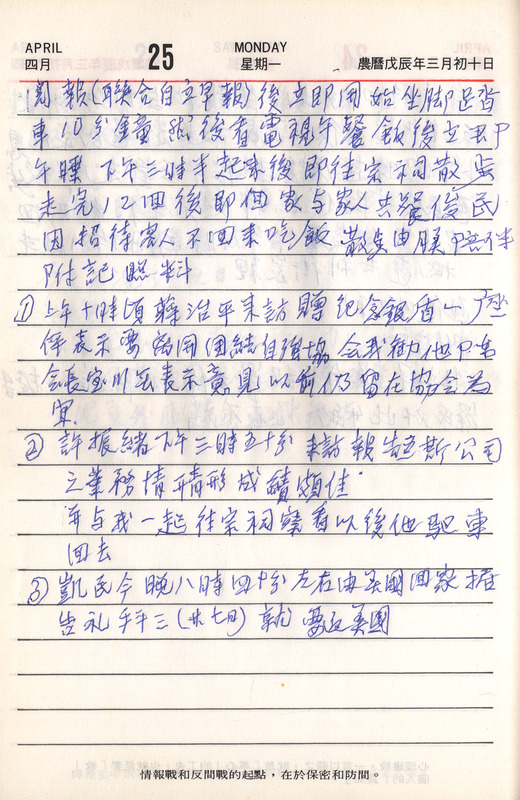 APRIL 四月 25 MONDAY 星期一 農曆戊辰年三月初十日
閱報(聯合自立早報)後立即開始坐脚足踏
車10分鐘 然後看電視午餐飯後立即
午睡 下午三時半起來後即往宗祠散步
走完12回後即回家与家人共餐後民
因招待客人不回來吃飯 散步由 陪伴
附記照料
① 上午十時頃韓治平來訪贈紀念銀盾一座
伊表示要離開團結自強協会我勸他
会長 表示意見以前仍留在協会為
宜
② 許振緒下午三時五十分來訪報告 斯公司
之業務情形成績頗佳
並与我一起往宗祠察看以後他駛車
回去
③ 凱民今晚八時四十分左右由美國回家據
告礼拜三(廿七日)就要返美國
情報戰和反間戰的起點，在於保密和防間。